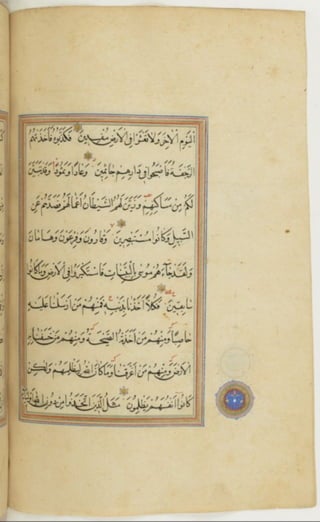 اليَوْمَ الْاٰخِرَ وَلَا تَعْثَوْا فِي الْاَرْضِ مُفْسِدِينَ فَكَذَّبُوهُ فَاَخَذَتْهُمُ
الرَّجْفَةُ فَاَصْبَحُوا فِي دَارِهِمْ جَاثِمِينَ وَعَادًا وَثَمُودَا وَقَدْ تَبَيَّنَ
لَكُمْ مِنْ مَسَاكِنِهِمْ وَزَيَّنَ لَهُمُ الشَّيْطَانُ اَعْمَالَهُمْ فَصَدَّهُمْ عَنِ
السَّبِيلِ وَكَانُوا مُسْتَبْصِرِينَ وَقَارُونَ وَفِرْعَوْنَ وَهَامَانَ
وَلَقَدْ جَاءَهُمْ مُوسٰى بِالْبَيِّنَاتِ فَاسْتَكْبَرُوا فِي الْاَرْضِ وَمَا كَانُوا
سَابِقِينَ فَكُلًّا اَخَذْنَا بِذَنْبِهِ فَمِنْهُمْ مَنْ اَرْسَلْنَا عَلَيْهِ
حَاصِبًا وَمِنْهُمْ مَنْ اَخَذَتْهُ الصَّيْحَةُ وَمِنْهُمْ مَنْ خَسَفْنَا بِهِ
الْاَرْضَ وَمِنْهُمْ مَنْ اَغْرَقْنَا وَمَا كَانَ اللهُ لِيَظْلِمَهُمْ وَلٰكِنْ
كَانُوا اَنْفُسَهُمْ يَظْلِمُونَ مَثَلُ الَّذِينَ اتَّخَذُوا مِنْ دُونِ اللهِ